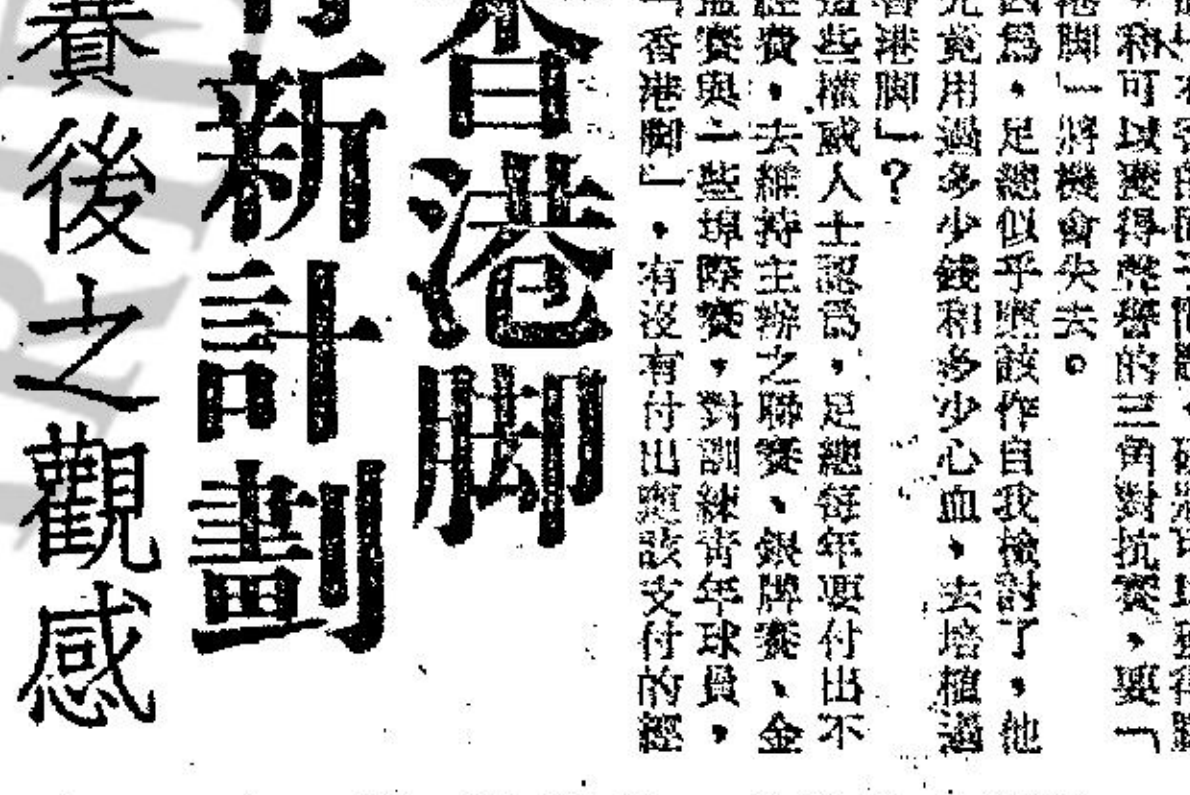 ，和可以變得聲譽的三角對抗賽，要「
港脚」將機會失去。
因爲，足總似乎應該作自我檢討了，他
究竟用過多少錢和多少心血，去培植過
香港脚」？
這些權威人士認爲，足總每年要付出不
經費，去維持主辦之聯賽、銀牌賽、金
盃賽與一些埠際賽，對訓練靑年球員，
「香港脚」，有沒有付出應該支付的經
香港脚
新計劃
賽後之觀感